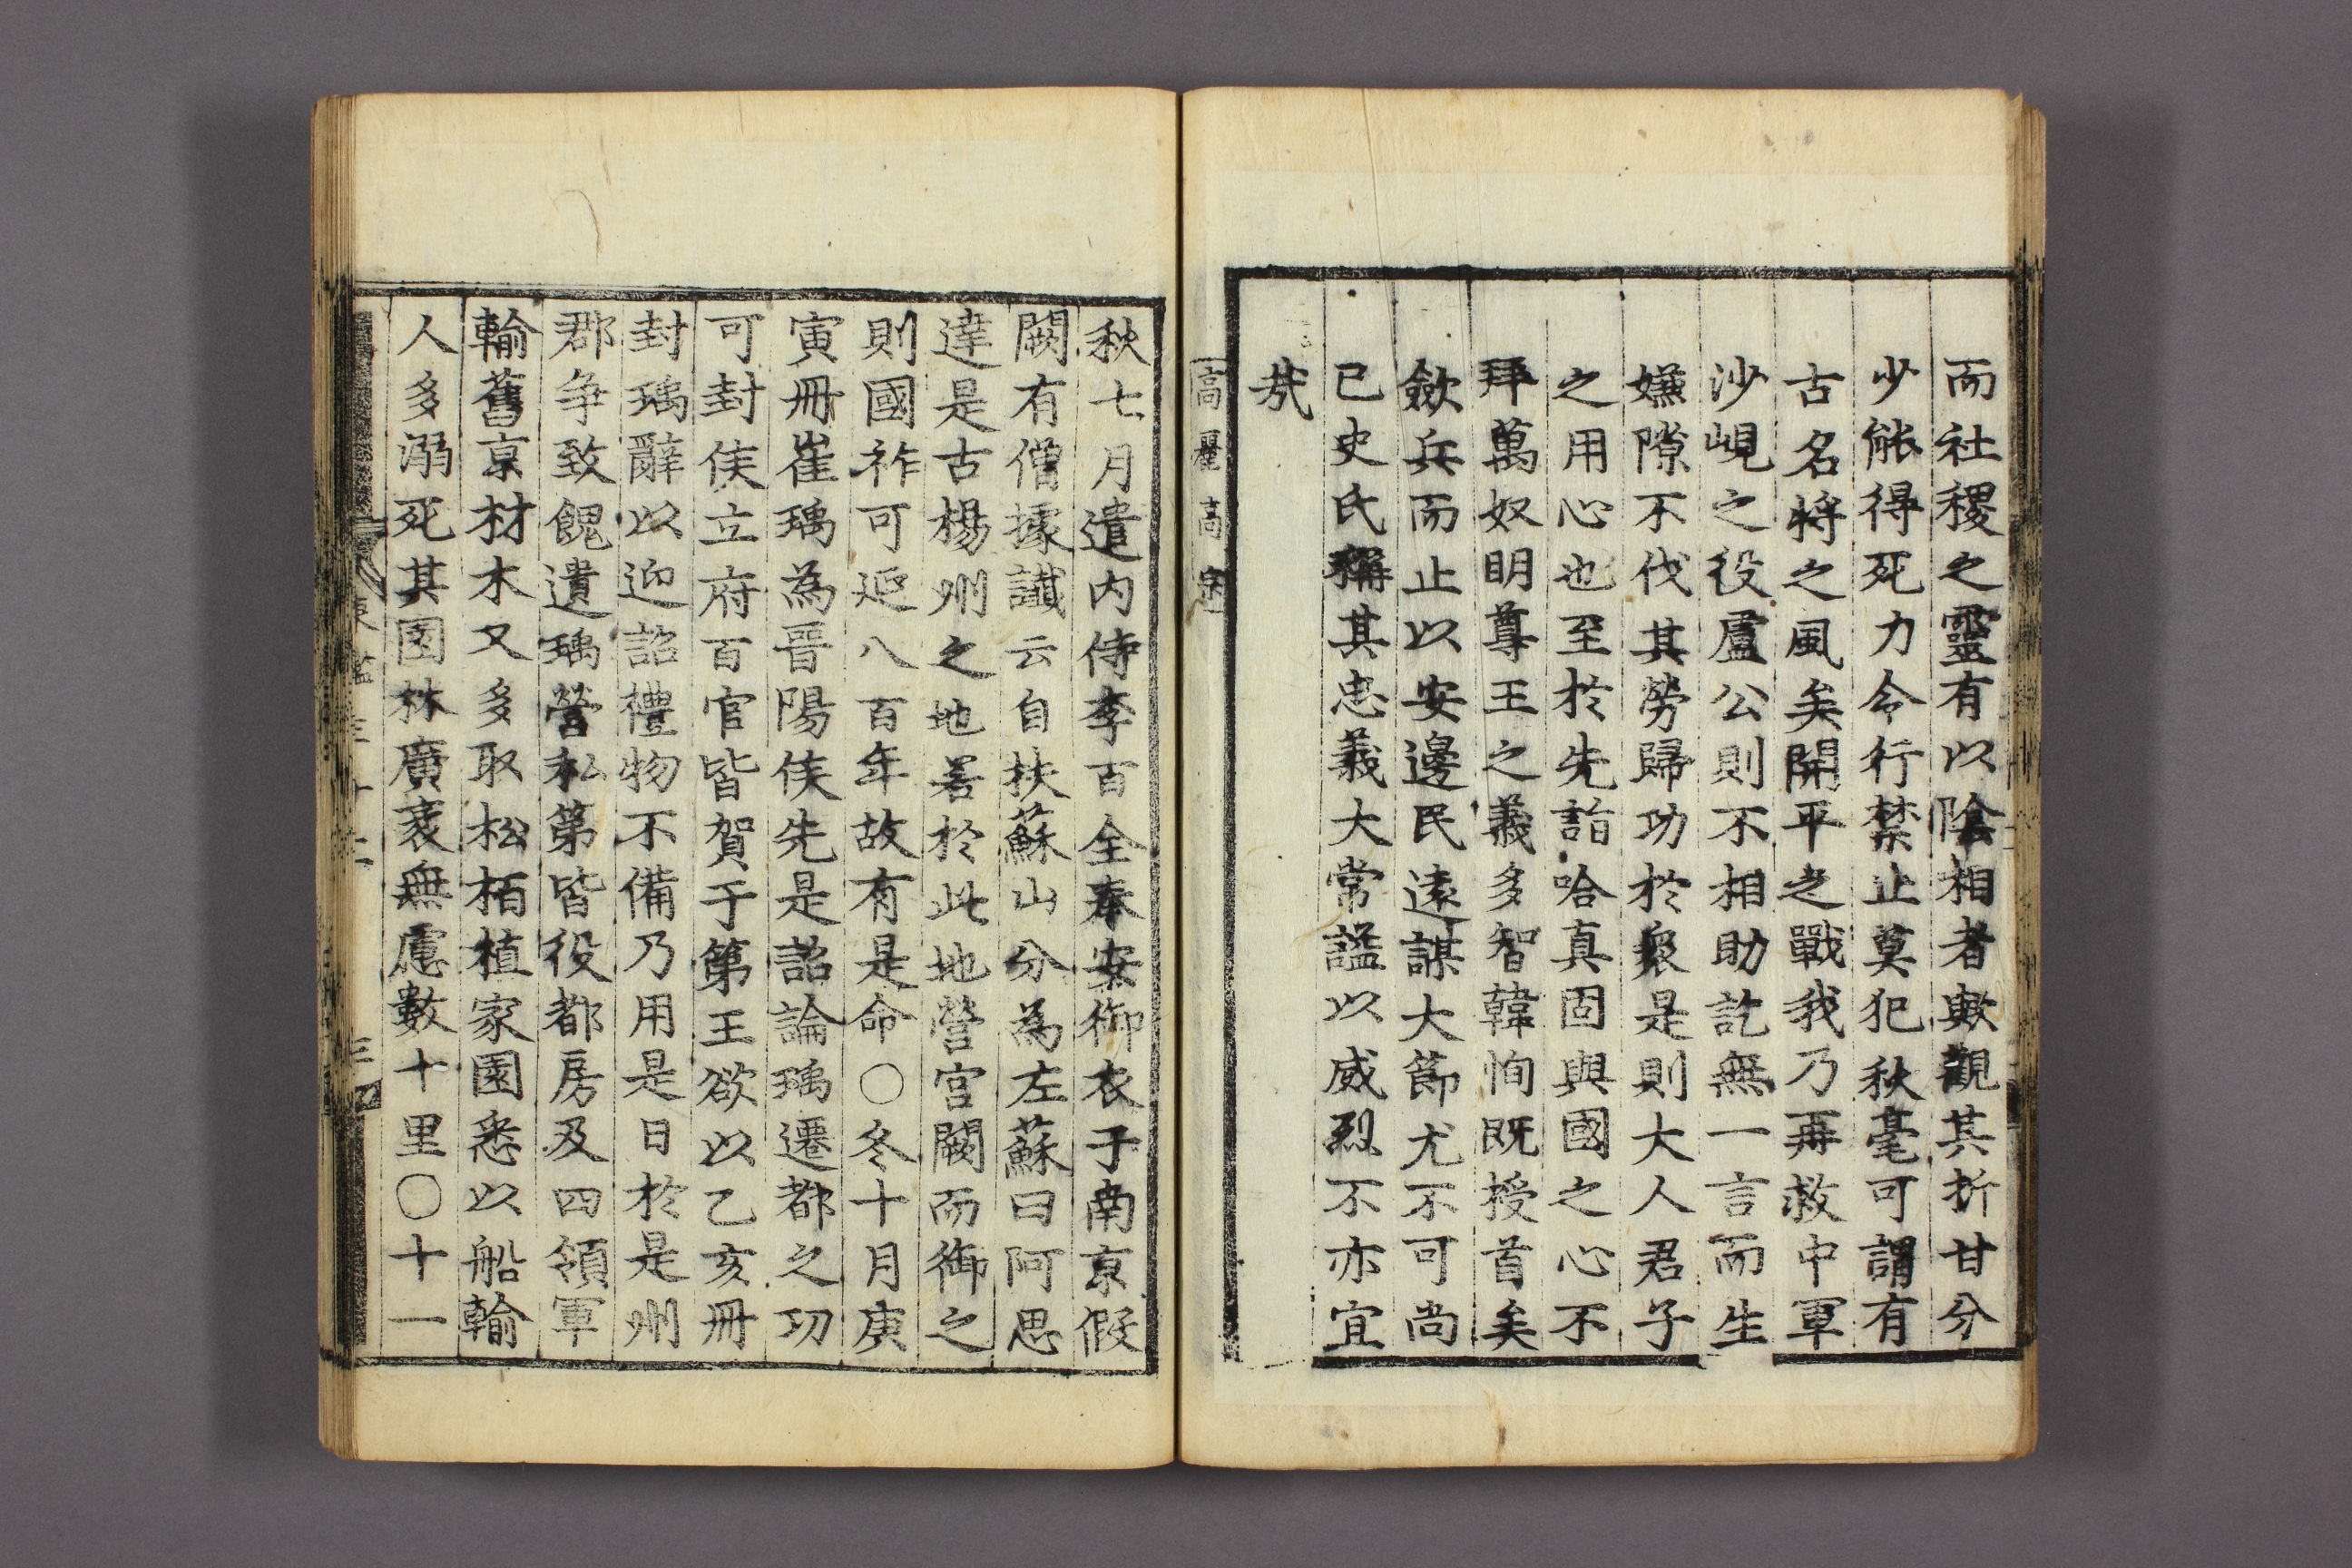 而社稷之靈有以陰相者歟觀其折甘分
少能得死力令行禁止莫犯秋毫可謂有
古名將之風矣開平之戰我乃再救中軍
沙峴之役盧公則不相助訖無一言而生
嫌隙不伐其勞歸功於衆是則大人君子
之用心也至於先詣哈真固與國之心不
拜萬奴明尊王之義多智韓恂旣授首矣
斂兵而止以安邊民遠謀大節尤不可尚
已史氏稱其忠義大常謚以威烈不亦宜
哉
高麗高宗
秋七月遣內侍李百全奉安御衣于南京假
闕有僧據讖云自扶蘇山分爲左蘇曰阿思
達是古楊州之地若於此地營宮闕而御之
則國祚可延八百年故有是命○冬十月庚
寅冊崔瑀爲晉陽侯先是詔論瑀遷都之功
可封侯立府百官皆賀于第王欲以乙亥冊
封瑀辭以迎詔禮物不備乃用是日於是州
郡爭致餽遺瑀營私第皆役都房及四領軍
輸舊京材木又多取松栢植家園悉以船輸
人多溺死其園林廣袤無慮數十里○十一